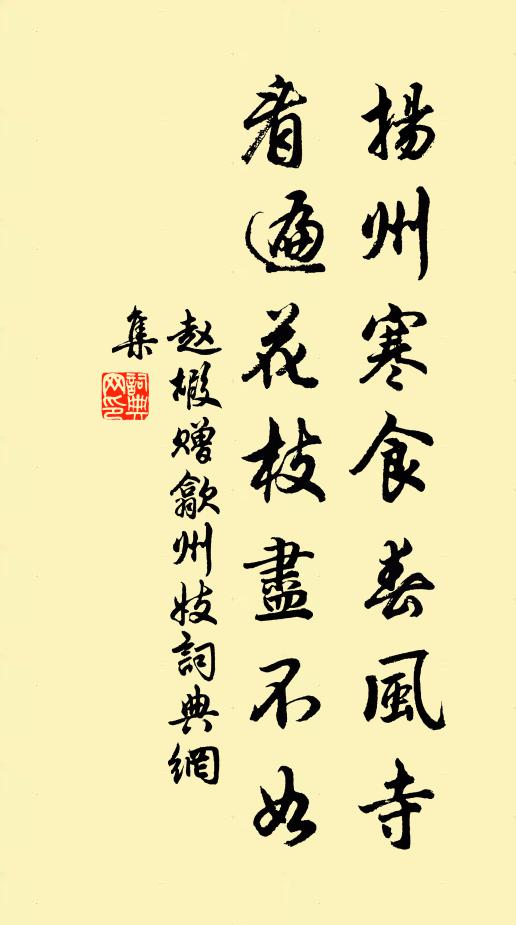 揚州寒食春風寺
看遍花枝盡不如
赵嘏赠歙州妓詞典網
集
詞典
网印